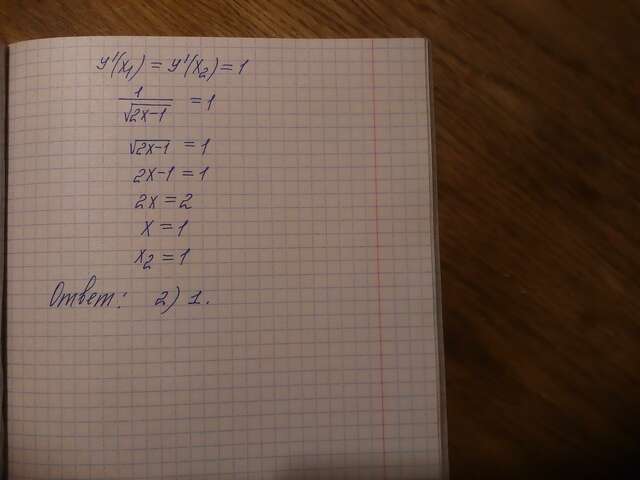 y'(x₁) = y'(x₂) = 1
1/√(2x-1) = 1
√(2x-1) = 1
2x-1 = 1
2x = 2
x = 1
x₂ = 1
Ответ: 2) 1.